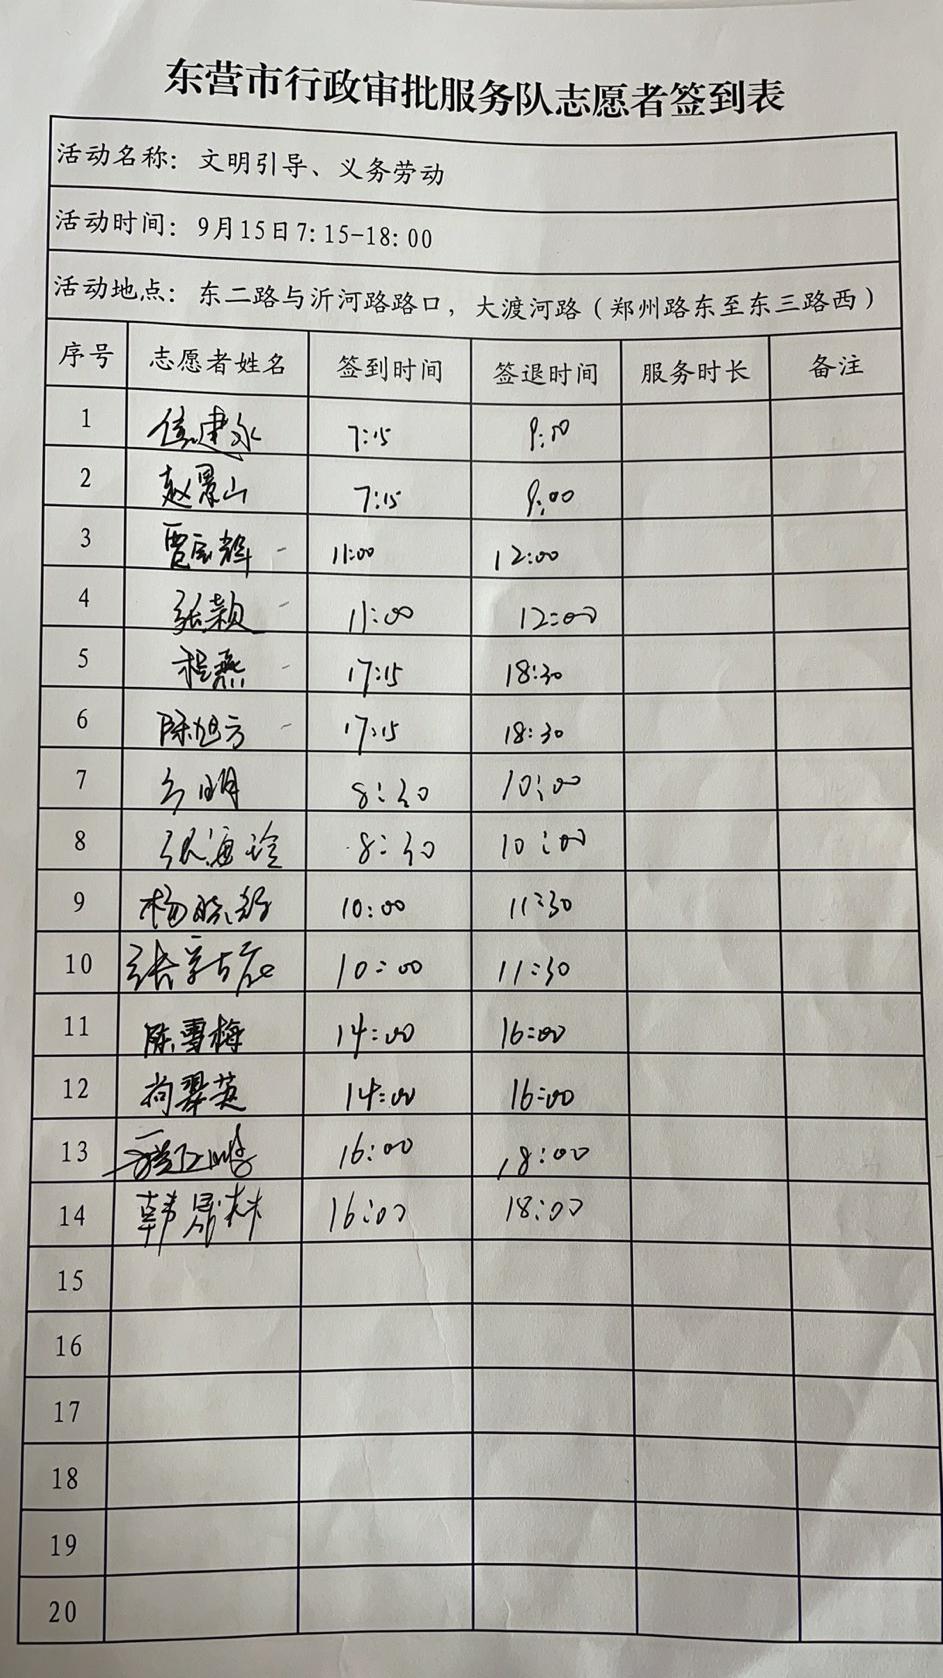 东营市行政审批服务队志愿者签到表
活动名称：文明引导、义务劳动
活动时间：9月15日7:15-18:00
活动地点：东二路与沂河路路口，大渡河路（郑州路东至东三路西）
序号 志愿者姓名 签到时间 签退时间 服务时长 备注
1 侯建永 7:15 9:00
2 赵景山 7:15 9:00
3 11:00 12:00
4 张颖 11:00 12:00
5 程燕 17:15 18:30
6 陈旭方 17:15 18:30
7 8:30 10:00
8 张海玲 8:30 10:00
9 杨晓 10:00 11:30
10 张 10:00 11:30
11 陈雪梅 14:00 16:00
12 尚翠英 14:00 16:00
13 16:00 18:00
14 韩 林 16:00 18:00
15
16
17
18
19
20